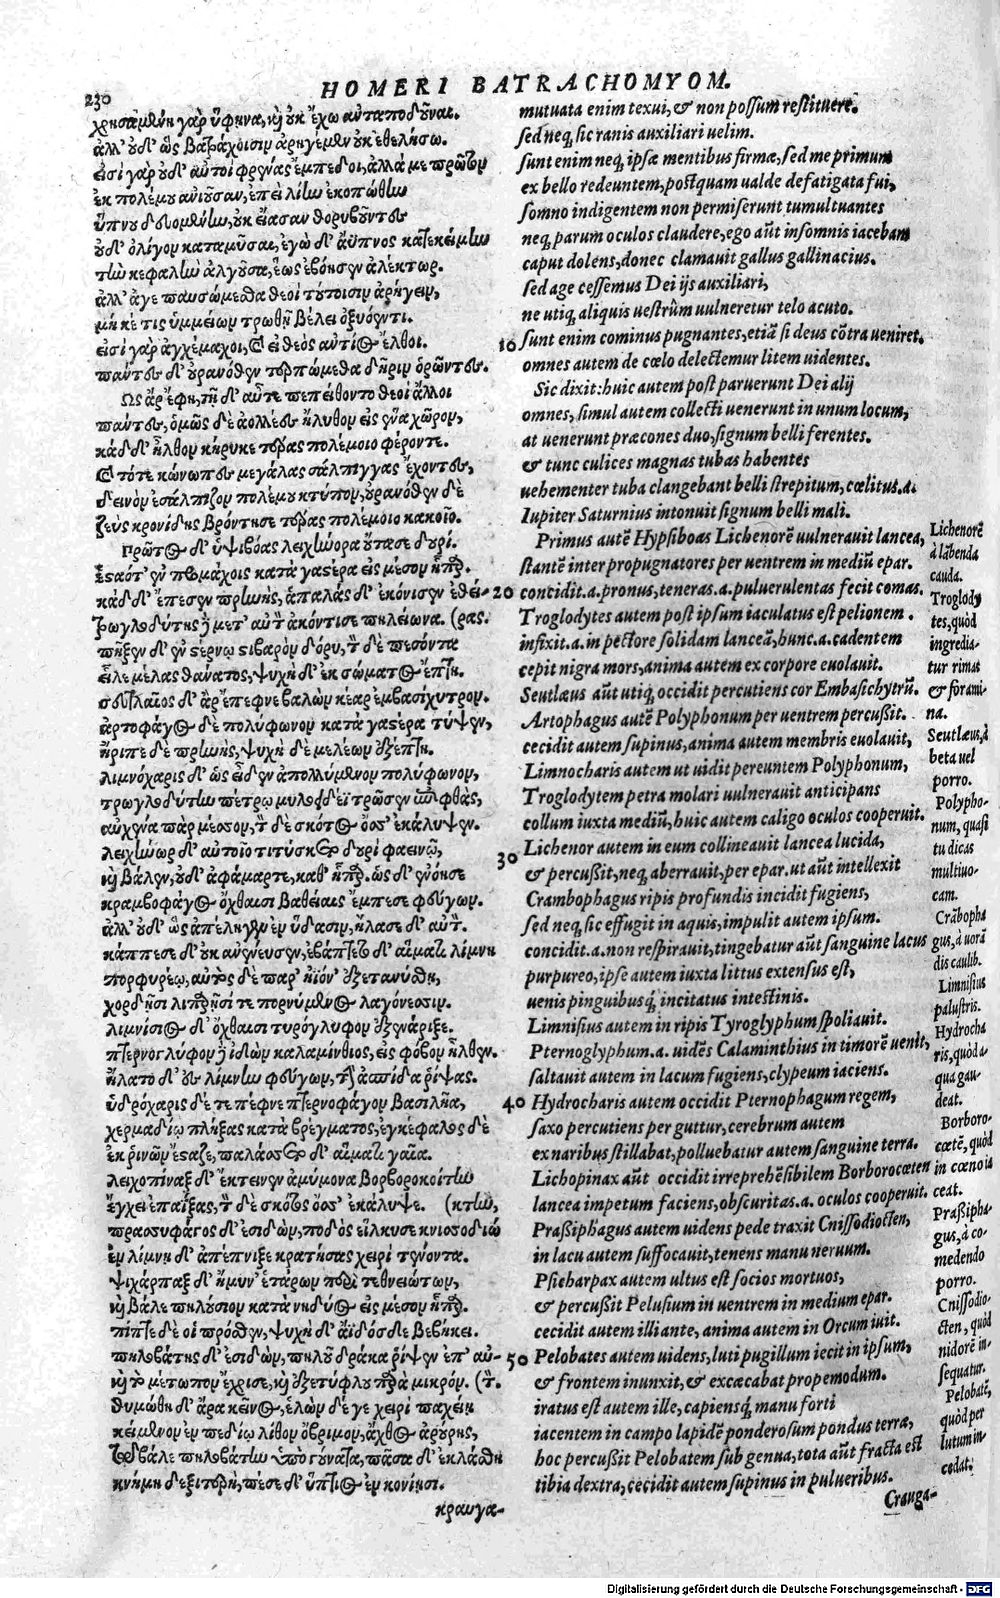 230
HOMERI BATRACHOMYOM.
χρησαμένη γὰρ ὕφηνα, καὶ οὐκ ἔχω ἀνταποδοῦναι.
ἀλλ' οὐδ' ὣς βατράχοισιν ἀρηγέμεν οὐκ ἐθελήσω.
εἰσὶ γὰρ οὐδ' αὐτοὶ φρένας ἔμπεδοι, ἀλλά με πρῶτον
ἐκ πολέμου ἀνιοῦσαν, ἐπεὶ λίην ἐκοπώθην
ὕπνου δευομένην, οὐκ εἴασαν θορυβοῦντες
οὐδ' ὀλίγον καταμῦσαι, ἐγὼ δ' ἄϋπνος κατεκείμην
τὴν κεφαλὴν ἀλγοῦσα, ἕως ἐβόησεν ἀλέκτωρ.
ἀλλ' ἄγε παυσώμεσθα θεοὶ τούτοισιν ἀρήγειν,
μή κέ τις ὑμμείων τρωθῇ βέλει ὀξυόεντι.
εἰσὶ γὰρ ἀγχέμαχοι, καὶ εἰ θεὸς ἀντίος ἔλθοι.
πάντες δ' οὐρανόθεν τερπώμεθα δῆριν ὁρῶντες.
Ὣς ἄρ' ἔφη, τῇ δ' αὖτε πεπείθοντο θεοὶ ἄλλοι
πάντες, ὁμῶς δὲ ἀολλέες ἤλυθον εἰς ἕνα χῶρον,
κὰδ δ' ἦλθον κήρυκε τέρας πολέμοιο φέροντε.
καὶ τότε κώνωπες μεγάλας σάλπιγγας ἔχοντες,
δεινὸν ἐσάλπιζον πολέμου κτύπον, οὐρανόθεν δὲ
ζεὺς κρονίδης βρόντησε τέρας πολέμοιο κακοῖο.
πρῶτος δ' ὑψιβόας λειχήνορα οὔτασε δουρί.
ἑσταότ' ἐν προμάχοις κατὰ γαστέρα εἰς μέσον ἧπαρ.
κὰδ δ' ἔπεσεν πρηνὴς, ἁπαλὰς δ' ἐκόνισεν ἐθεί-
τρωγλοδύτης δὲ μετ' αὐτὸν ἀκόντισε πηλείωνα. (ρας.
πῆξεν δ' ἐν στέρνῳ στιβαρὸν δόρυ, τὸν δὲ πεσόντα
εἷλε μέλας θάνατος, ψυχὴ δ' ἐκ σώματος ἔπτη.
σευτλαῖος δ' ἄρ' ἔπεφνε βαλὼν κέαρ ἐμβασίχυτρον.
ἀρτοφάγος δὲ πολύφωνον κατὰ γαστέρα τύψεν,
ἤριπε δὲ πρηνὴς, ψυχὴ δὲ μελέων ἐξέπτη.
λιμνόχαρις δ' ὡς εἶδεν ἀπολλύμενον πολύφωνον,
τρωγλοδύτην πέτρῳ μυλοειδέϊ τρῶσεν ἐπιφθὰς,
αὐχένα παρ μέσσον, τὸν δὲ σκότος ὄσσε κάλυψεν.
λειχήνωρ δ' αὐτοῖο τιτύσκετο δουρὶ φαεινῷ,
καὶ βάλεν, οὐδ' ἀφάμαρτε, καθ' ἧπαρ. ὡς δ' ἐνόησε
κραμβοφάγος ὄχθαισι βαθείαις ἔμπεσε φεύγων.
ἀλλ' οὐδ' ὣς ἀπέληγεν ἐν ὕδασιν, ἤλασε δ' αὐτόν.
κάππεσε δ' οὐκ ἀνένευσεν, ἐβάπτετο δ' αἵματι λίμνη
πορφυρέῳ, αὐτὸς δὲ παρ' ἠϊόν' ἐξετανύσθη,
χορδῇσι λιπαρῇσί τε πορνύμενος λαγόνεσσιν.
λιμνίσιος δ' ὄχθαισι τυρόγλυφον ἐξενάριξε.
πτερνογλύφον δὲ ἰδὼν καλαμίνθιος, εἰς φόβον ἦλθεν.
ἥλατο δ' ἐς λίμνην φεύγων, τὴν ἀσπίδα ῥίψας.
ὑδρόχαρις δέ τε πέφνε πτερνοφάγον βασιλῆα,
χερμαδίῳ πλήξας κατὰ βρέγματος, ἐγκέφαλος δὲ
ἐκ ῥινῶν ἔσταζε, παλάσσετο δ' αἵματι γαῖα.
λειχοπίναξ δ' ἔκτεινεν ἀμύμονα βορβοροκοίτην
ἔγχει ἐπαΐξας, τὸν δὲ σκότος ὄσσ' ἐκάλυψε. (κτην,
πρασσοφάγος δ' ἐσιδὼν, ποδὸς εἵλκυσε κνισσοδιώ
ἐν λίμνῃ δ' ἀπέπνιξε κρατήσας χειρὶ τένοντα.
ψιχάρπαξ δ' ἤμυν' ἑτάρων περὶ τεθνειώτων,
καὶ βάλε πηλούσιον κατὰ νηδύος εἰς μέσον ἧπαρ.
πίπτε δέ οἱ πρόσθεν, ψυχὴ δ' ἄϊδόσδε βεβήκει.
πηλοβάτης δ' ἐσιδὼν, πηλοῦ δράκα ῥίψεν ἐπ' αὐ-
καὶ τὸ μέτωπον ἔχρισε, καὶ ἐξετύφλου παρὰ μικρόν. (τόν.
θυμώθη δ' ἄρα κεῖνος, ἑλὼν δέ γε χειρὶ παχείῃ
κείμενον ἐν πεδίῳ λίθον ὄβριμον, ἄχθος ἀρούρης,
τῷ βάλε πηλοβάτην ὑπὸ γούνατα, πᾶσα δ' ἐκλάσθη
κνήμη δεξιτερὴ, πέσε δ' ὕπτιος ἐν κονίῃσι.
κραυγα-
mutuata enim texui, & non possum restituere.
sed neq; sic ranis auxiliari uelim.
sunt enim neq; ipsæ mentibus firmæ, sed me primum
ex bello redeuntem, postquam ualde defatigata fui,
somno indigentem non permiserunt tumultuantes
neq; parum oculos claudere, ego aūt insomnis iacebam
caput dolens, donec clamauit gallus gallinacius.
sed age cessemus Dei ijs auxiliari,
ne utiq; aliquis uestrûm uulneretur telo acuto.
10 Sunt enim cominus pugnantes, etiā si deus cōtra ueniret.
omnes autem de cœlo delectemur litem uidentes.
Sic dixit: huic autem post paruerunt Dei alij
omnes, simul autem collecti uenerunt in unum locum,
at uenerunt præcones duo, signum belli ferentes.
& tunc culices magnas tubas habentes
uehementer tuba clangebant belli strepitum, cœlitus.a.
Iupiter Saturnius intonuit signum belli mali.
Primus autē Hypsiboas Lichenorē uulnerauit lancea,
stantē inter propugnatores per uentrem in mediū epar.
20 concidit.a. pronus, teneras.a. puluerulentas fecit comas.
Troglodytes autem post ipsum iaculatus est pelionem.
infixit.a. in pectore solidam lanceā, hunc.a. cadentem
cepit nigra mors, anima autem ex corpore euolauit.
Seutlæus aūt utiq; occidit percutiens cor Embasichytrū.
Artophagus autē Polyphonum per uentrem percußit.
cecidit autem supinus, anima autem membris euolauit,
Limnocharis autem ut uidit pereuntem Polyphonum,
Troglodytem petra molari uulnerauit anticipans
collum iuxta mediū, huic autem caligo oculos cooperuit.
30 Lichenor autem in eum collineauit lancea lucida,
& percußit, neq; aberrauit, per epar. ut aūt intellexit
Crambophagus ripis profundis incidit fugiens,
sed neq; sic effugit in aquis, impulit autem ipsum.
concidit.a. non respirauit, tingebatur aūt sanguine lacus
purpureo, ipse autem iuxta littus extensus est,
uenis pinguibusq; incitatus intestinis.
Limnisius autem in ripis Tyroglyphum spoliauit.
Pternoglyphum.a. uidēs Calaminthius in timorē uenit,
saltauit autem in lacum fugiens, clypeum iaciens.
40 Hydrocharis autem occidit Pternophagum regem,
saxo percutiens per guttur, cerebrum autem
ex naribus stillabat, polluebatur autem sanguine terra.
Lichopinax aūt occidit irreprehēsibilem Borborocœten
lancea impetum faciens, obscuritas.a. oculos cooperuit.
Praßiphagus autem uidens pede traxit Cnissodiocten,
in lacu autem suffocauit, tenens manu neruum.
Psicharpax autem ultus est socios mortuos,
& percußit Pelusium in uentrem in medium epar.
cecidit autem illi ante, anima autem in Orcum iuit.
50 Pelobates autem uidens, luti pugillum iecit in ipsum,
& frontem inunxit, & excæcabat propemodum.
iratus est autem ille, capiensq; manu forti
iacentem in campo lapidē ponderosum pondus terræ,
hoc percußit Pelobatem sub genua, tota aūt fracta est
tibia dextra, cecidit autem supinus in pulueribus.
Crauga-
Lichenorē
à lābenda
cauda.
Troglody
tes, quòd
ingredia-
tur rimas
& forami-
na.
Seutlæus, à
beta uel
porro.
Polypho-
num, quasi
tu dicas
multiuo-
cam.
Crābopha
gus, à uorā
dis caulib.
Limnisius
palustris.
Hydrocha
ris, quòd a-
qua gau-
deat.
Borboro-
cœtē, quòd
in cœno ia
ceat.
Praßipha-
gus, à co-
medendo
porro.
Cnissodio-
cten, quòd
nidorē in-
sequatur.
Pelobatē,
quòd per
lutum in-
cedat.
Digitalisierung gefördert durch die Deutsche Forschungsgemeinschaft - DFG